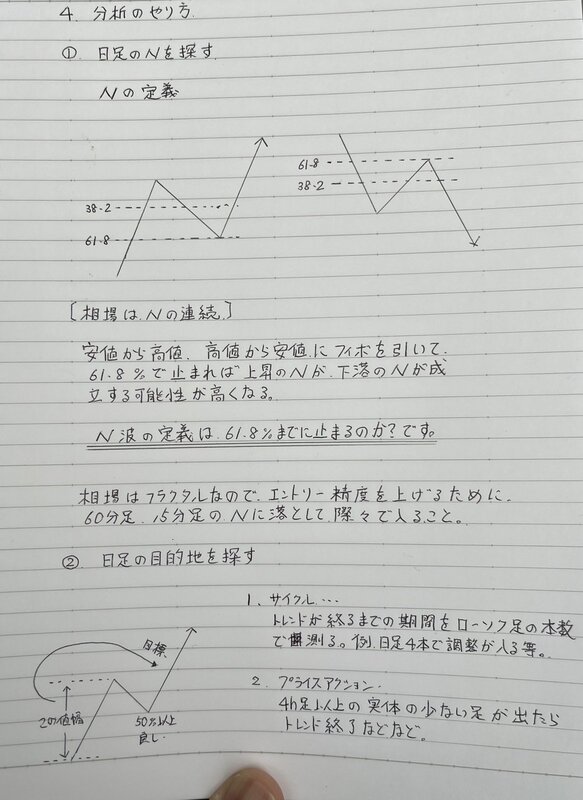 4. 分析のやり方
① 日足のNを探す
Nの定義
38-2
61-8
61-8
38-2
[相場は、Nの連続、]
安値から高値、高値から安値にフィボを引いて、
61.8%で止まれば上昇のNが、下落のNが成
立する可能性が高くなる。
N波の定義は、61.8%までに止まるのか?です。
相場はフラクタルなので、エントリー精度を上げるために、
60分足、15分足のNに落として際々で入ること。
② 日足の目的地を探す
1、サイクル…
トレンドが終るまでの期間をローソク足の本数
で測る。例、日足4本で調整が入る等。
2、プライスアクション、
4h足以上の実体の少ない足が出たら
トレンド終了などなど。
目標
この値幅
50%以上
良し、